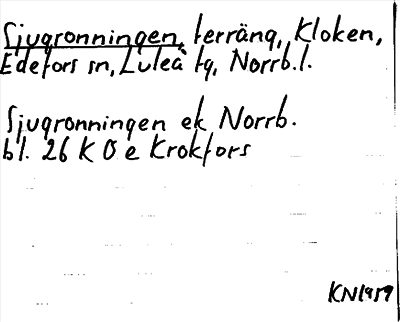 Sjugronningen, terräng, Kloken,
Edefors sn, Luleå tg, Norrb.l.
Sjugronningen ek Norrb.
bl. 26 K 0 e Krokfors
KN1959